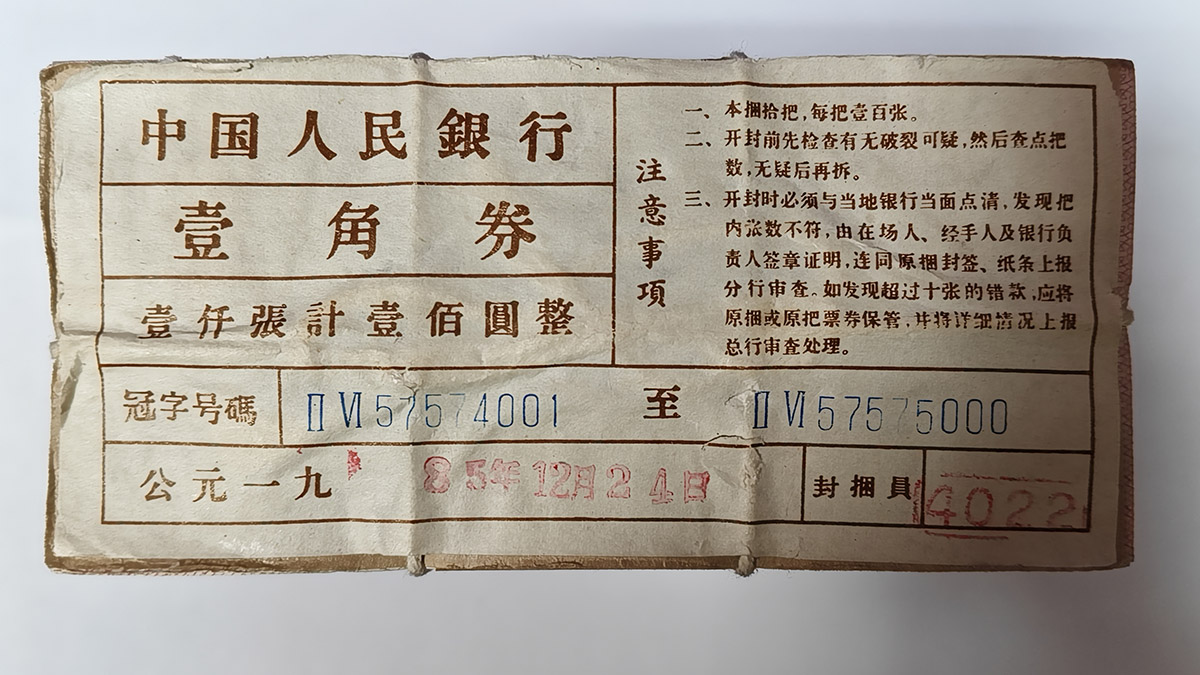 中国人民銀行
壹角券
壹仟張計壹佰圓整
注意事項
一、本捆拾把，每把壹百张。
二、开封前先检查有无破裂可疑，然后查点把
数，无疑后再拆。
三、开封时必须与当地银行当面点清，发现把
内张数不符，由在场人、经手人及银行负
责人签章证明，连同原捆封签、纸条上报
分行审查。如发现超过十张的错款，应将
原捆或原把票券保管，并将详细情况上报
总行审查处理。
冠字号碼 ⅡⅥ57574001 至 ⅡⅥ57575000
公元一九 85年12月24日 封捆員 4022